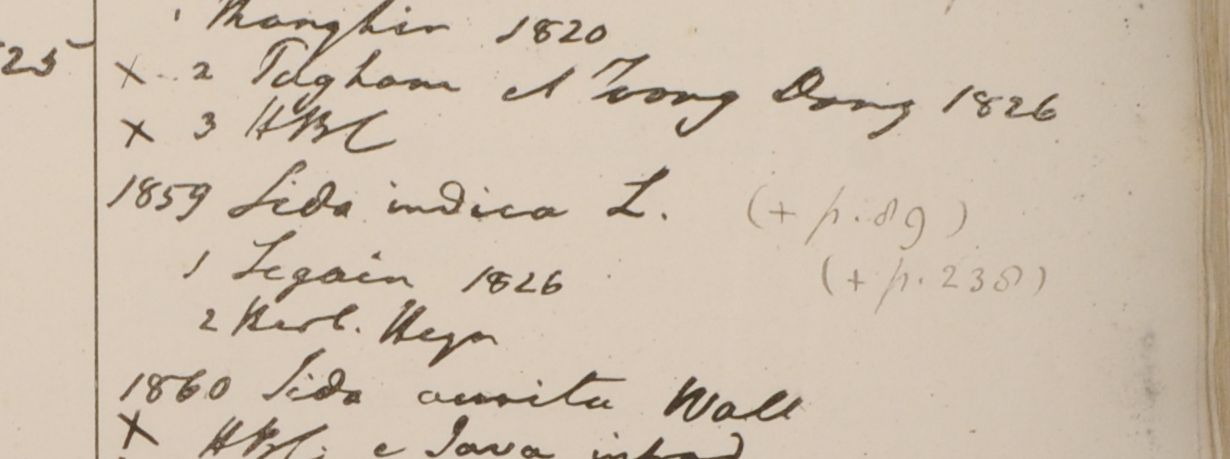 1 Thanghin 1820
25 × 2 Taghan et Trong Dong 1826
× 3 HBC
1859 Sida indica L. (+ p. 89)
1 Segain 1826 (+ p. 238)
2 Herb. Heyn
1860 Sida aurita Wall
× HBC, e Java introd